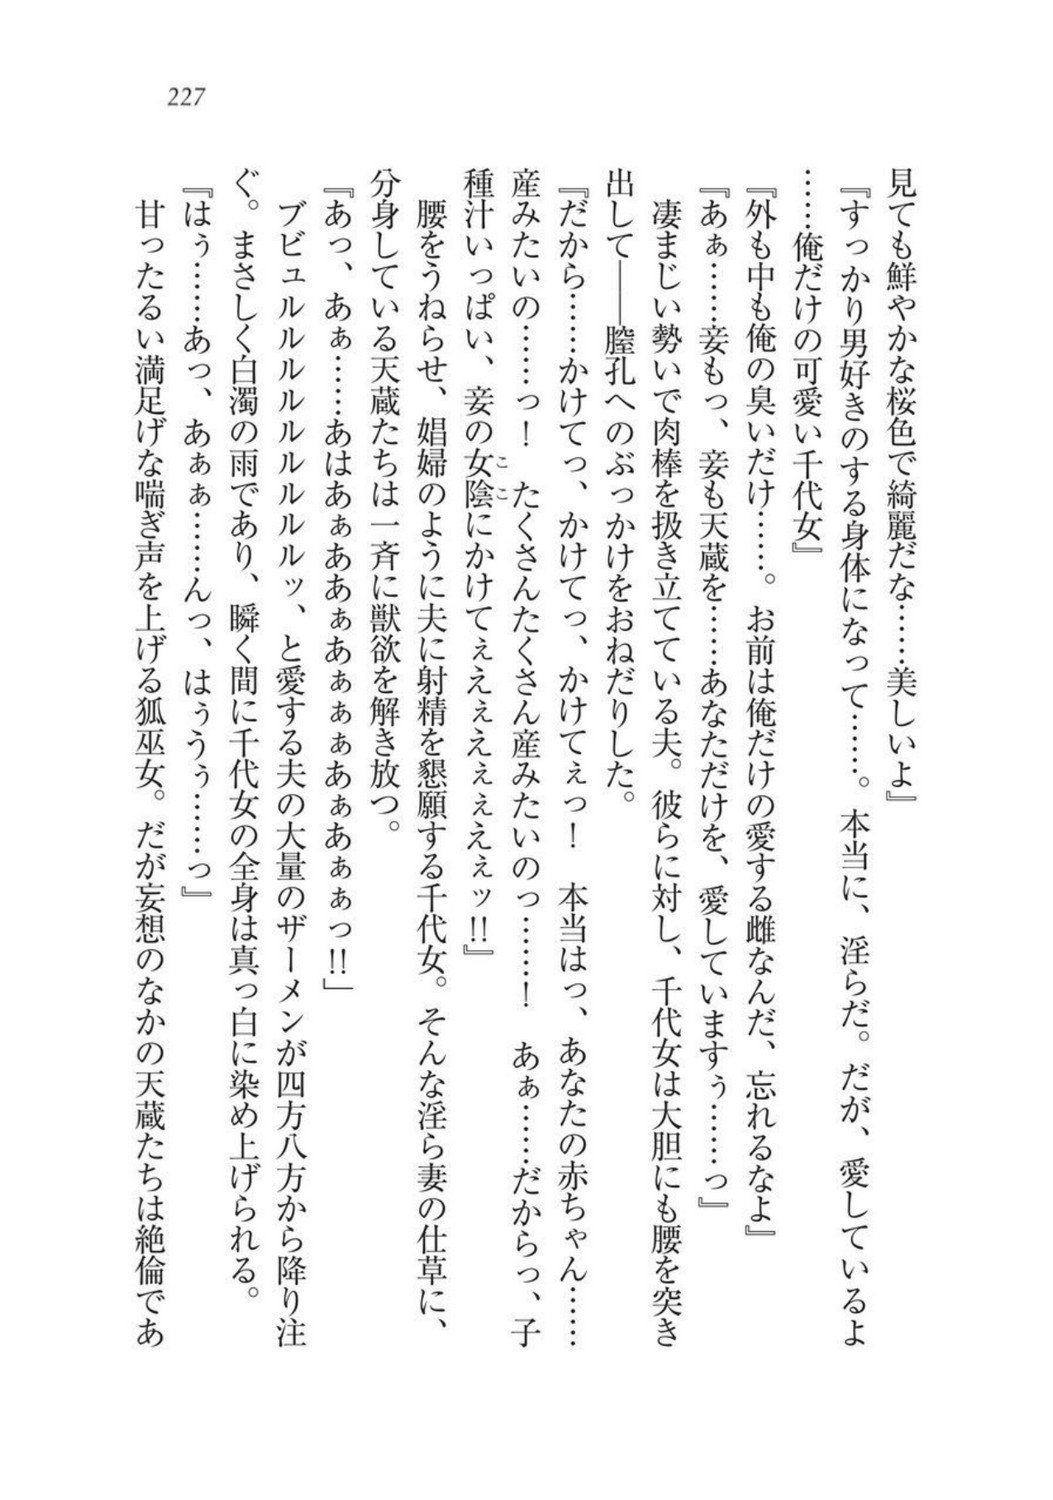 227
見ても鮮やかな桜色で綺麗だな……美しいよ』
『すっかり男好きのする身体になって……。本当に、淫らだ。だが、愛しているよ
……俺だけの可愛い千代女』
『外も中も俺の臭いだけ……。お前は俺だけの愛する雌なんだ、忘れるなよ』
『あぁ……妾もっ、妾も天蔵を……あなただけを、愛していますぅ……っ』
凄まじい勢いで肉棒を扱き立てている夫。彼らに対し、千代女は大胆にも腰を突き
出して――膣孔へのぶっかけをおねだりした。
『だから……かけてっ、かけてっ、かけてぇっ！　本当はっ、あなたの赤ちゃん……
産みたいの……っ！　たくさんたくさん産みたいのっ……！　あぁ……だからっ、子
種汁いっぱい、妾の女陰にかけてぇえぇえぇぇえぇッ!!』
ここ
腰をうねらせ、娼婦のように夫に射精を懇願する千代女。そんな淫ら妻の仕草に、
分身している天蔵たちは一斉に獣欲を解き放つ。
『あっ、あぁ……あはあぁああぁあぁぁぁあぁあぁぁっ!!」
ブビュルルルルルルルルッ、と愛する夫の大量のザーメンが四方八方から降り注
ぐ。まさしく白濁の雨であり、瞬く間に千代女の全身は真っ白に染め上げられる。
『はぅ……あっ、あぁぁ……んっ、はぅうぅ……っ』
甘ったるい満足げな喘ぎ声を上げる狐巫女。だが妄想のなかの天蔵たちは絶倫であ